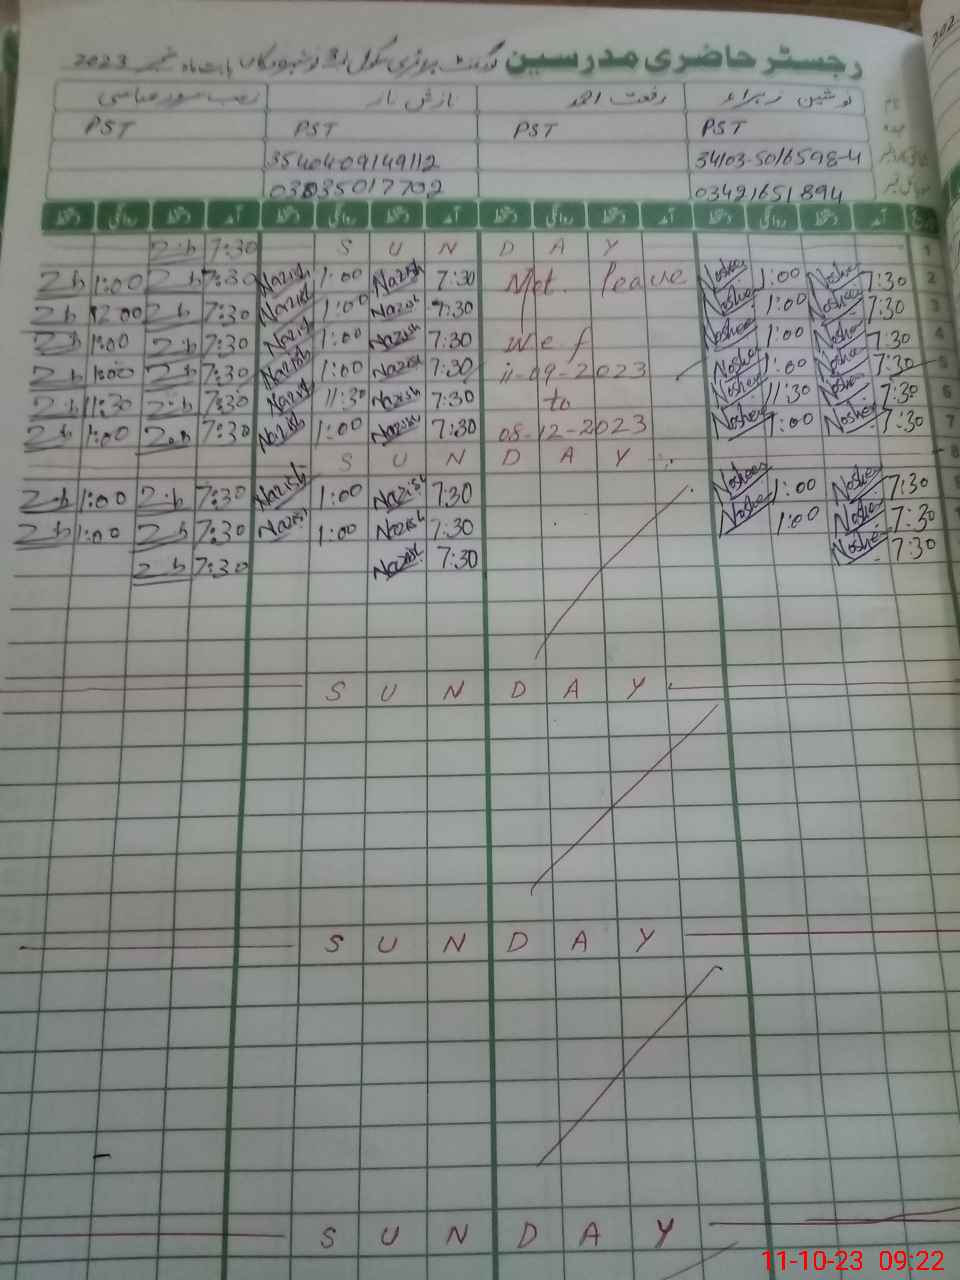 رجسٹر حاضری مدرسین گورنمنٹ پرائمری سکول بابت ماہ 2023
نام نوشین زہراء رفعت احمد نازش ناز
عہدہ PST PST PST PST
34103-5016598-4 35404-09149112
03421651894 03035017702
تاریخ آمد دستخط روانگی دستخط آمد دستخط روانگی دستخط آمد دستخط روانگی دستخط آمد دستخط روانگی دستخط
1 S U N D A Y 7:30 zh
2 7:30 Noshee 1:00 Noshee Mat. leave 7:30 Nazish 1:00 Nazish 7:30 zh 1:00 zh
3 7:30 Noshee 1:00 Noshee 7:30 Nazish 1:00 Nazish 7:30 zh 12:00 zh
4 7:30 Noshee 1:00 Noshee w e f 7:30 Nazish 1:00 Nazish 7:30 zh 1:00 zh
5 7:30 Noshee 1:00 Noshee 11-09-2023 7:30 Nazish 1:00 Nazish 7:30 zh 1:00 zh
6 7:30 Noshee 11:30 Noshee to 7:30 Nazish 11:30 Nazish 7:30 zh 11:30 zh
7 7:30 Noshee 1:00 Noshee 08-12-2023 7:30 Nazish 1:00 Nazish 7:30 zh 1:00 zh
8 S U N D A Y
7:30 Noshee 1:00 Noshee 7:30 Nazish 1:00 Nazish 7:30 zh 1:00 zh
7:30 Noshee 1:00 Noshee 7:30 Nazish 1:00 Nazish 7:30 zh 1:00 zh
7:30 Noshee 7:30 Nazish 7:30 zh
S U N D A Y
S U N D A Y
S U N D A Y
11-10-23 09:22